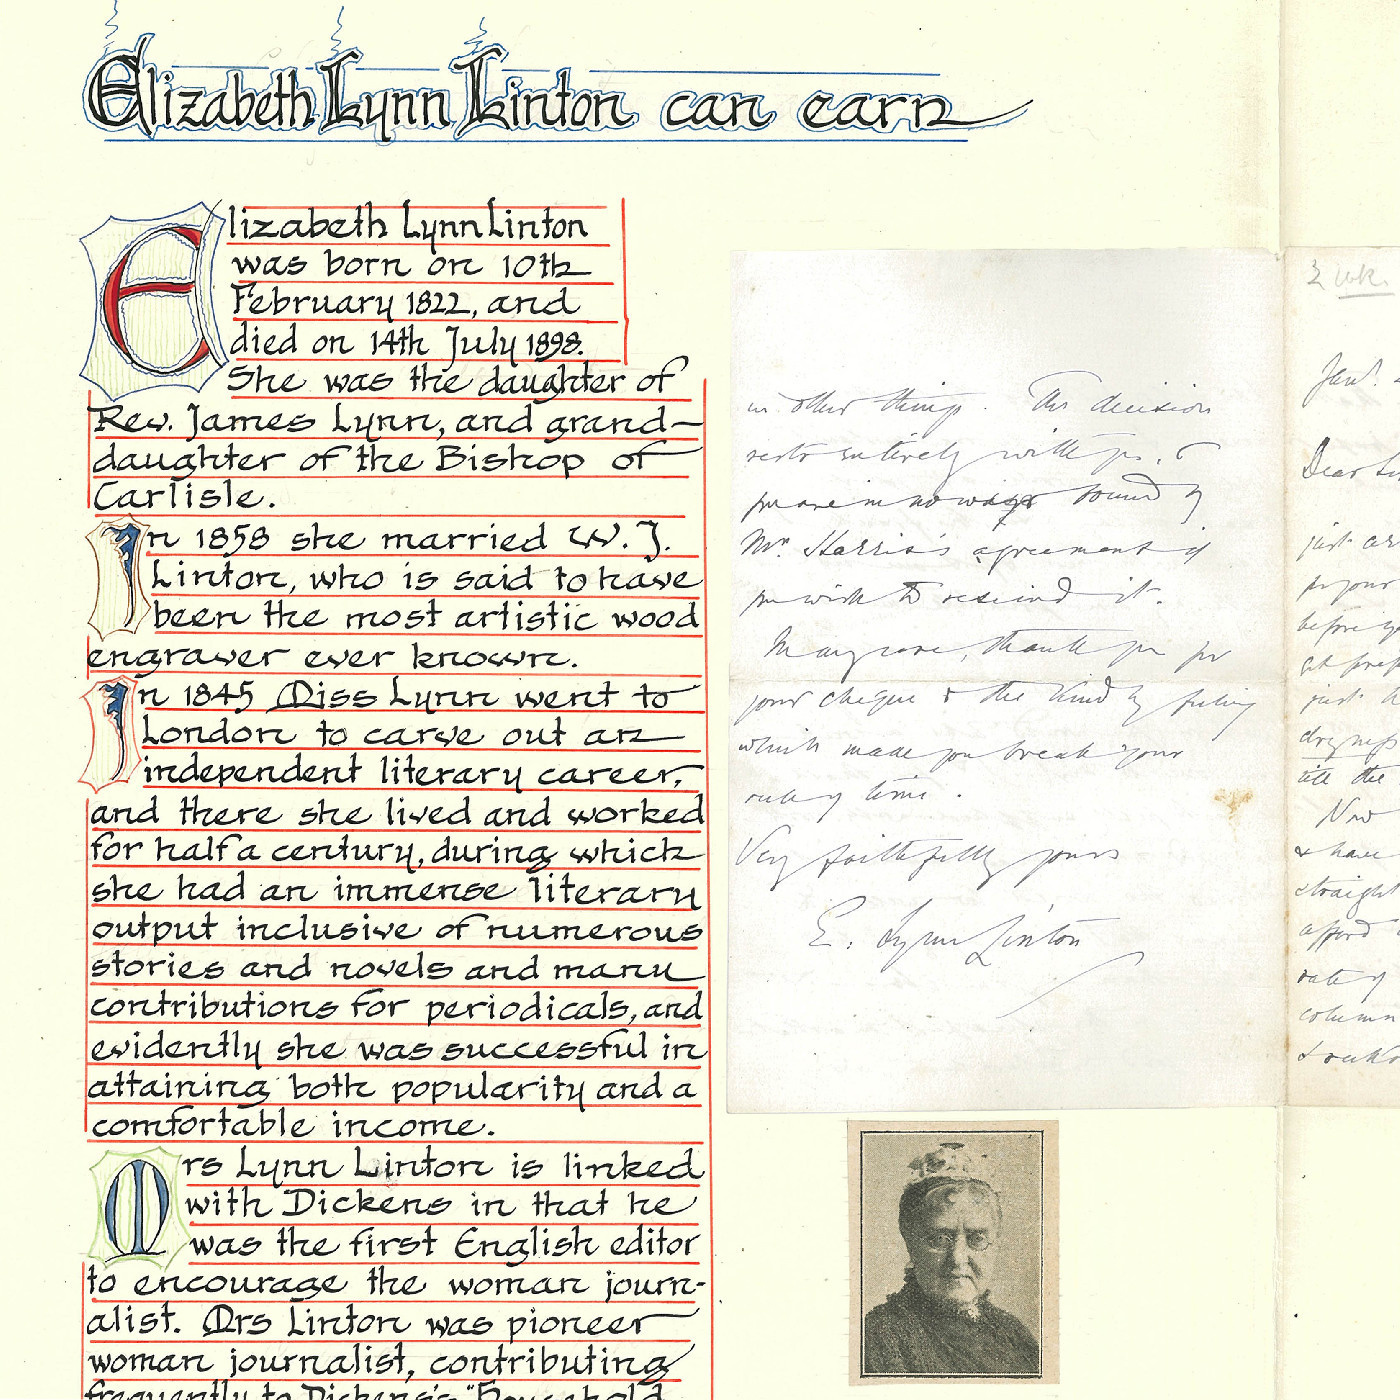 Elizabeth Lynn Linton can earn
Elizabeth Lynn Linton
was born on 10th
February 1822, and
died on 14th July 1898.
She was the daughter of
Rev. James Lynn, and grand-
daughter of the Bishop of
Carlisle.
In 1858 she married W. J.
Linton, who is said to have
been the most artistic wood
engraver ever known.
In 1845 Miss Lynn went to
London to carve out an
independent literary career,
and there she lived and worked
for half a century, during which
she had an immense literary
output inclusive of numerous
stories and novels and many
contributions for periodicals, and
evidently she was successful in
attaining both popularity and a
comfortable income.
Mrs Lynn Linton is linked
with Dickens in that he
was the first English editor
to encourage the woman journ-
alist. Mrs Linton was pioneer
woman journalist, contributing
frequently to Dickens's "Household
in other things. The decision
rests entirely with you, &
you are in no ways bound by
Mr. Harris's agreement if
you wish to rescind it.
Many more thank you for
your cheque & the kindly feeling
which made you break your
rule of time.
Very faithfully yours
E. Lynn Linton
Jan.
Dear
just
before
just
till the
Now
& have
straight
afford
rate of
column
&